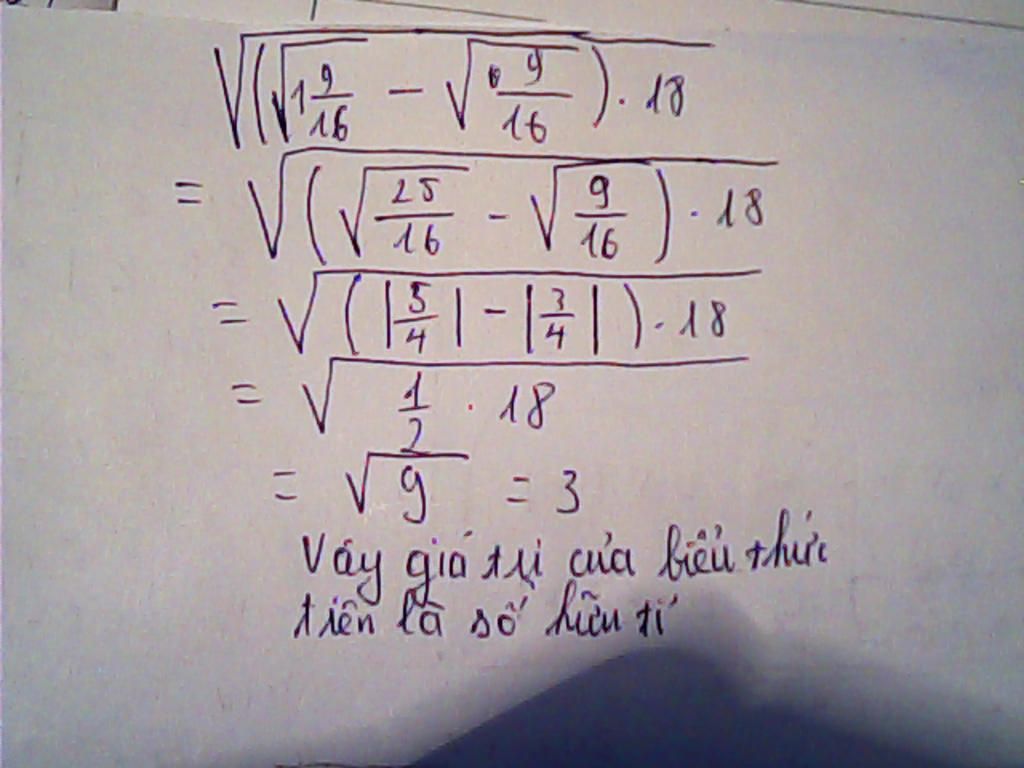 √((√(1 9/16) − √(9/16)) . 18)
= √((√(25/16) − √(9/16)) . 18)
= √((|5/4| − |3/4|) . 18)
= √(1/2 . 18)
= √9 = 3
Vậy giá trị của biểu thức
trên là số hữu tỉ